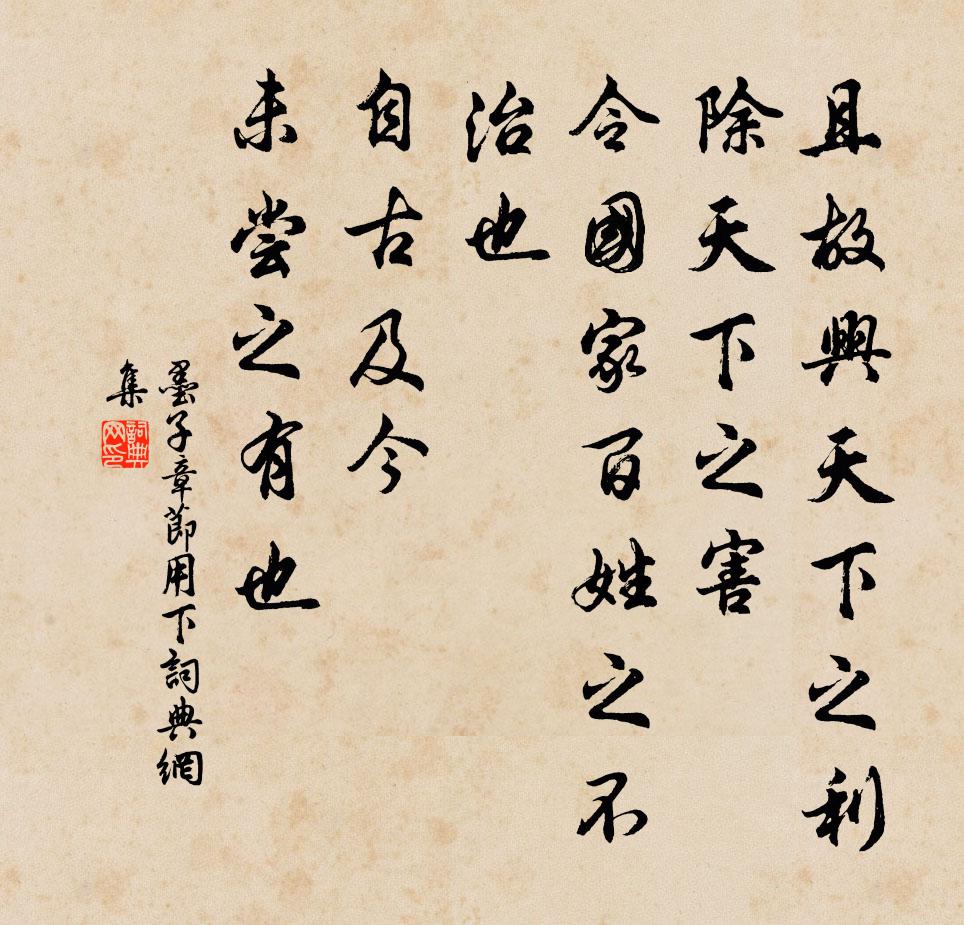 且故興天下之利
除天下之害
令國家百姓之不
治也
自古及今
未嘗之有也
墨子章節用下詞典網
集
詞典
网印